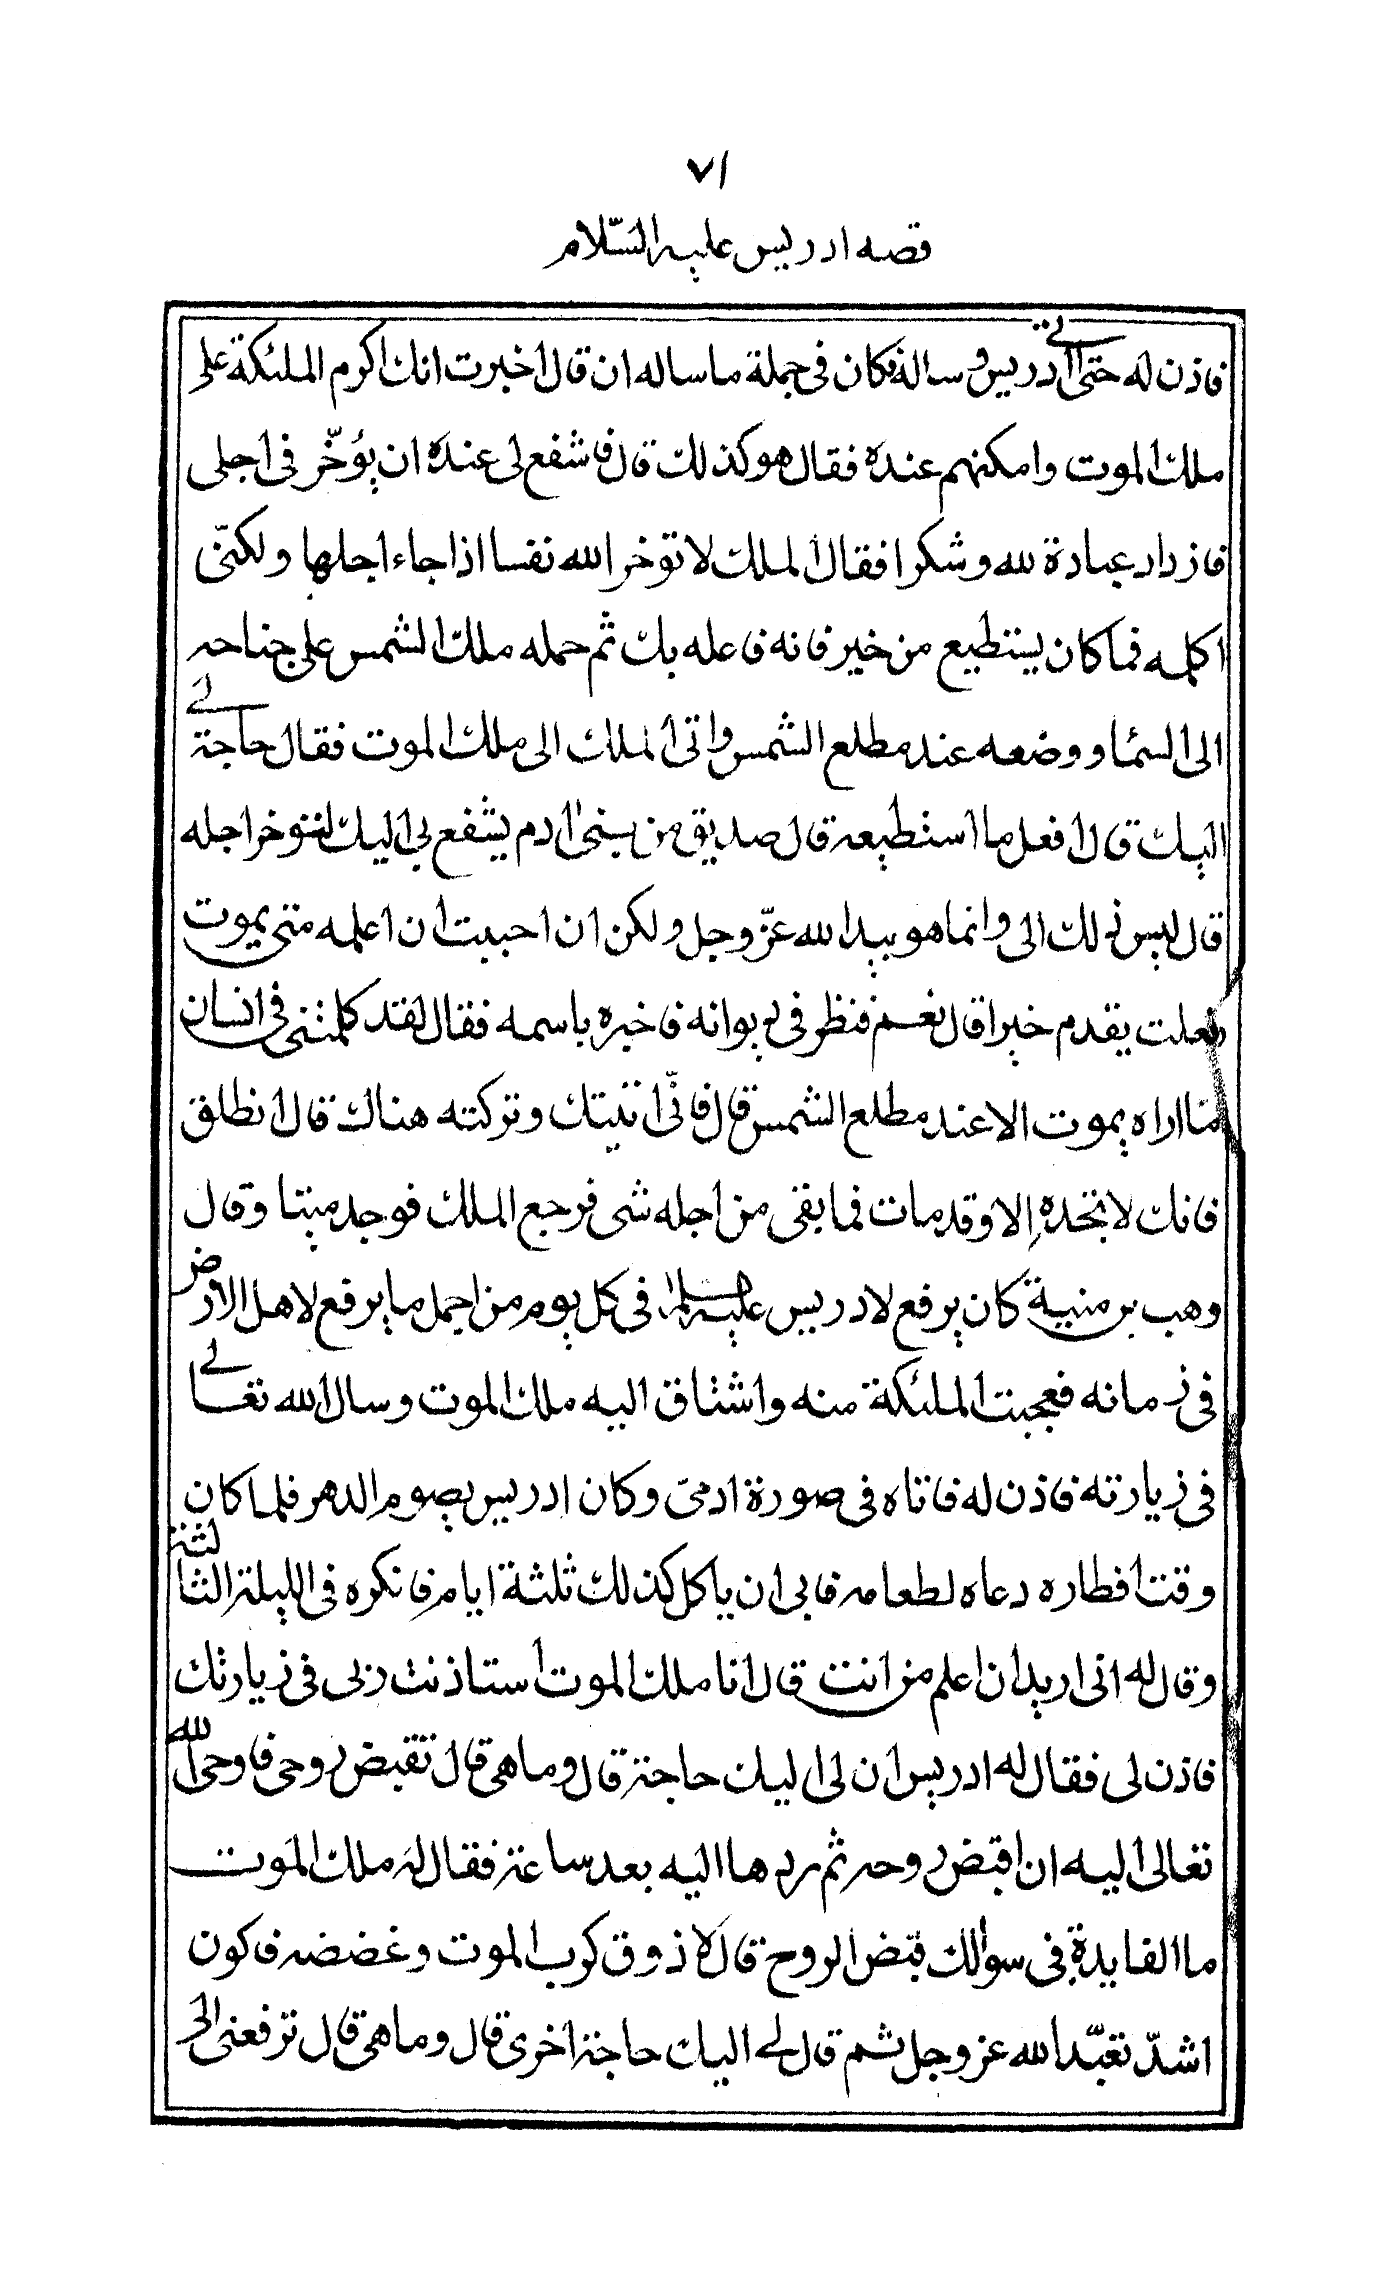 ٧١
قصه ادريس عليه السّلام
فاذن له حتى اتى ادريس و ساله فكان فى جملة ما ساله ان قال اخبرت انك اكرم الملئكة على
ملك الموت وامكنهم عنده فقال هو كذلك قال فاشفع لى عنده ان يؤخّر فى اجلى
فازداد عبادة لله وشكرا فقال الملك لا توخر الله نفسا اذا جاء اجلها ولكنّى
اكلمه فما كان يستطيع من خير فانه فاعله بك ثم حمله ملك الشمس على جناحه
الى السما و وضعه عند مطلع الشمس واتى الملك الى ملك الموت فقال حاجة لى
اليك قال افعل ما استطيعه قال صديق من بنى ادم يشفع بى اليك لتوخر اجله
قال ليس ذلك الى وانما هو بيد الله عزّ وجل ولكن ان احببت ان اعلمه متى يموت
فعلت يقدم خيرا قال نعم فنظر فى ديوانه فاخبره باسمه فقال لقد كلمتنى فى انسان
ما اراه يموت الا عند مطلع الشمس قال فانّى اتيتك وتركته هناك قال انطلق
فانك لا تجده الا وقد مات فما بقى من اجله شى فرجع الملك فوجد ميتا وقال
وهب بن منبية كان يرفع لادريس عليه السلم فى كل يوم من اجمل ما يرفع لاهل الارض
فى زمانه فعجبت الملئكة منه واشتاق اليه ملك الموت وسال الله تعالى
فى زيارته فاذن له فاتاه فى صورة ادمىّ وكان ادريس يصوم الدهر فلما كان
وقت افطاره دعاه لطعامه فابى ان ياكل كذلك ثلثة ايام فانكره فى الليلة الثالثة
وقال له انى اريد ان اعلم من انت قال انا ملك الموت استاذنت ربى فى زيارتك
فاذن لى فقال له ادريس ان لى اليك حاجة قال وما هى قال تقبض روحى فاوحى الله
تعالى اليه ان اقبض روحه ثم ردها اليه بعد ساعة فقال له ملك الموت
ما الفايدة فى سوالك قبض الروح قال لاذوق كرب الموت وغضضه فاكون
اشدّ تعبّدا لله عز وجل ثم قال لى اليك حاجة اخرى قال وما هى قال ترفعنى الى